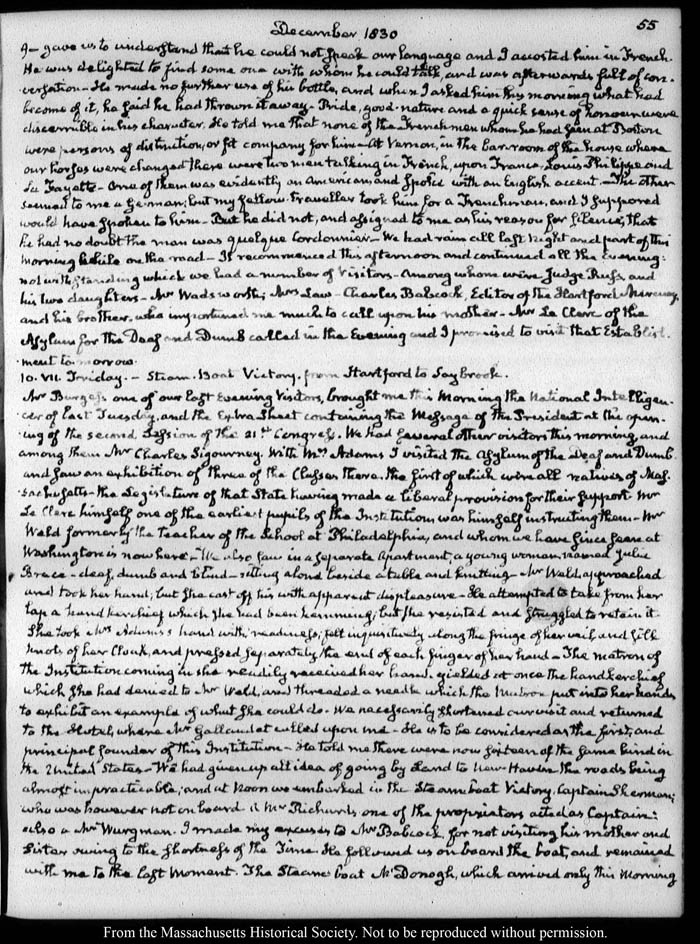 December 1830
55
I— gave us to understand that he could not speak our language and I accosted him in French.
He was delighted to find some one with whom he could talk, and was afterwards full of con-
versation— He made no further use of his bottle, and when I asked him this morning what had
become of it, he said he had thrown it away— Pride, good-nature and a quick sense of honour were
discernible in his character. He told me that none of the Frenchmen whom he had seen at Boston
were persons of distinction, or fit company for him— At Vernon, in the bar-room of the house where
our horses were changed there were two men talking in French, upon France, Louis Philippe and
La Fayette— One of them was evidently an American, and spoke with an English accent— The other
seemed to me a German; but my fellow-traveller took him for a Frenchman, and I supposed
would have spoken to him— But he did not, and assigned to me as his reason for silence, that
he had no doubt the man was quelque Cordonnier— We had rain all last Night and part of this
morning while on the road— It recommenced this afternoon and continued all the Evening:
notwithstanding which we had a number of Visitors— Among whom were Judge and
his two daughters— Mr Wadsworth; Mrs Law— Charles Babcock, Editor of the Hartford Mercury,
and his brother, who importuned me much to call upon his mother— Mr Le Clerc of the
Asylum for the Deaf and Dumb called in the Evening and I promised to visit that Establish-
ment to-morrow.
10. VII. Friday.— Steam-Boat Victory, from Hartford to Saybrook.
Mr Burgess one of our last Evening Visitors, brought me this Morning the National Intelligen-
cer of last Tuesday, and the Extra Sheet containing the Message of the President at the open-
ing of the second Session of the 21st Congress. We had several other visitors this morning, and
among them Mr Charles Sigourney. With Mrs Adams I visited the Asylum of the Deaf and Dumb
and saw an exhibition of three of the Classes there, the first of which were all natives of Mas-
sachusetts— the Legislature of that State having made a liberal provision for their support— Mr
Le Clerc himself one of the earliest pupils of the Institution, was himself instructing them— Mr
Weld formerly the teacher of the School at Philadelphia, and whom we have since seen at
Washington is now here— We also saw in a separate Apartment, a young woman named Julia
Brace— deaf, dumb and blind— sitting alone beside a table and knitting— Mr Weld approached
and took her hand; but she cast off his with apparent displeasure— He attempted to take from her
lap a handkerchief which she had been hemming; but she resisted and struggled to retain it
She took Mrs Adams's hand with readiness, felt inquisitively along the fringe of her veil and silk
knots of her Cloak, and pressed separately the end of each finger of her hand— The matron of
the Institution coming in she readily received her hand. yielded at once the handkerchief
which she had denied to Mr Weld, and threaded a needle which the Matron put into her hands
to exhibit an example of what she could do. We necessarily shortened our visit and returned
to the Hotel, where Mr Gallaudet called upon me— He is to be considered as the first, and
principal founder of this Institution— He told me there were now sixteen of the same kind in
the United States— We had given up all idea of going by Land to New-Haven the roads being
almost impracticable; and at Noon we embarked in the Steam boat Victory, Captain Sherman;
who was however not on board. A Mr Richards one of the proprietors acted as Captain:
also a Mr Wurgman. I made my excuses to Mr Babcock, for not visiting his mother and
Sister owing to the shortness of the Time. He followed us on board the boat, and remained
with me to the last Moment. The Steam boat McDonogh, which arrived only this Morning
From the Massachusetts Historical Society. Not to be reproduced without permission.